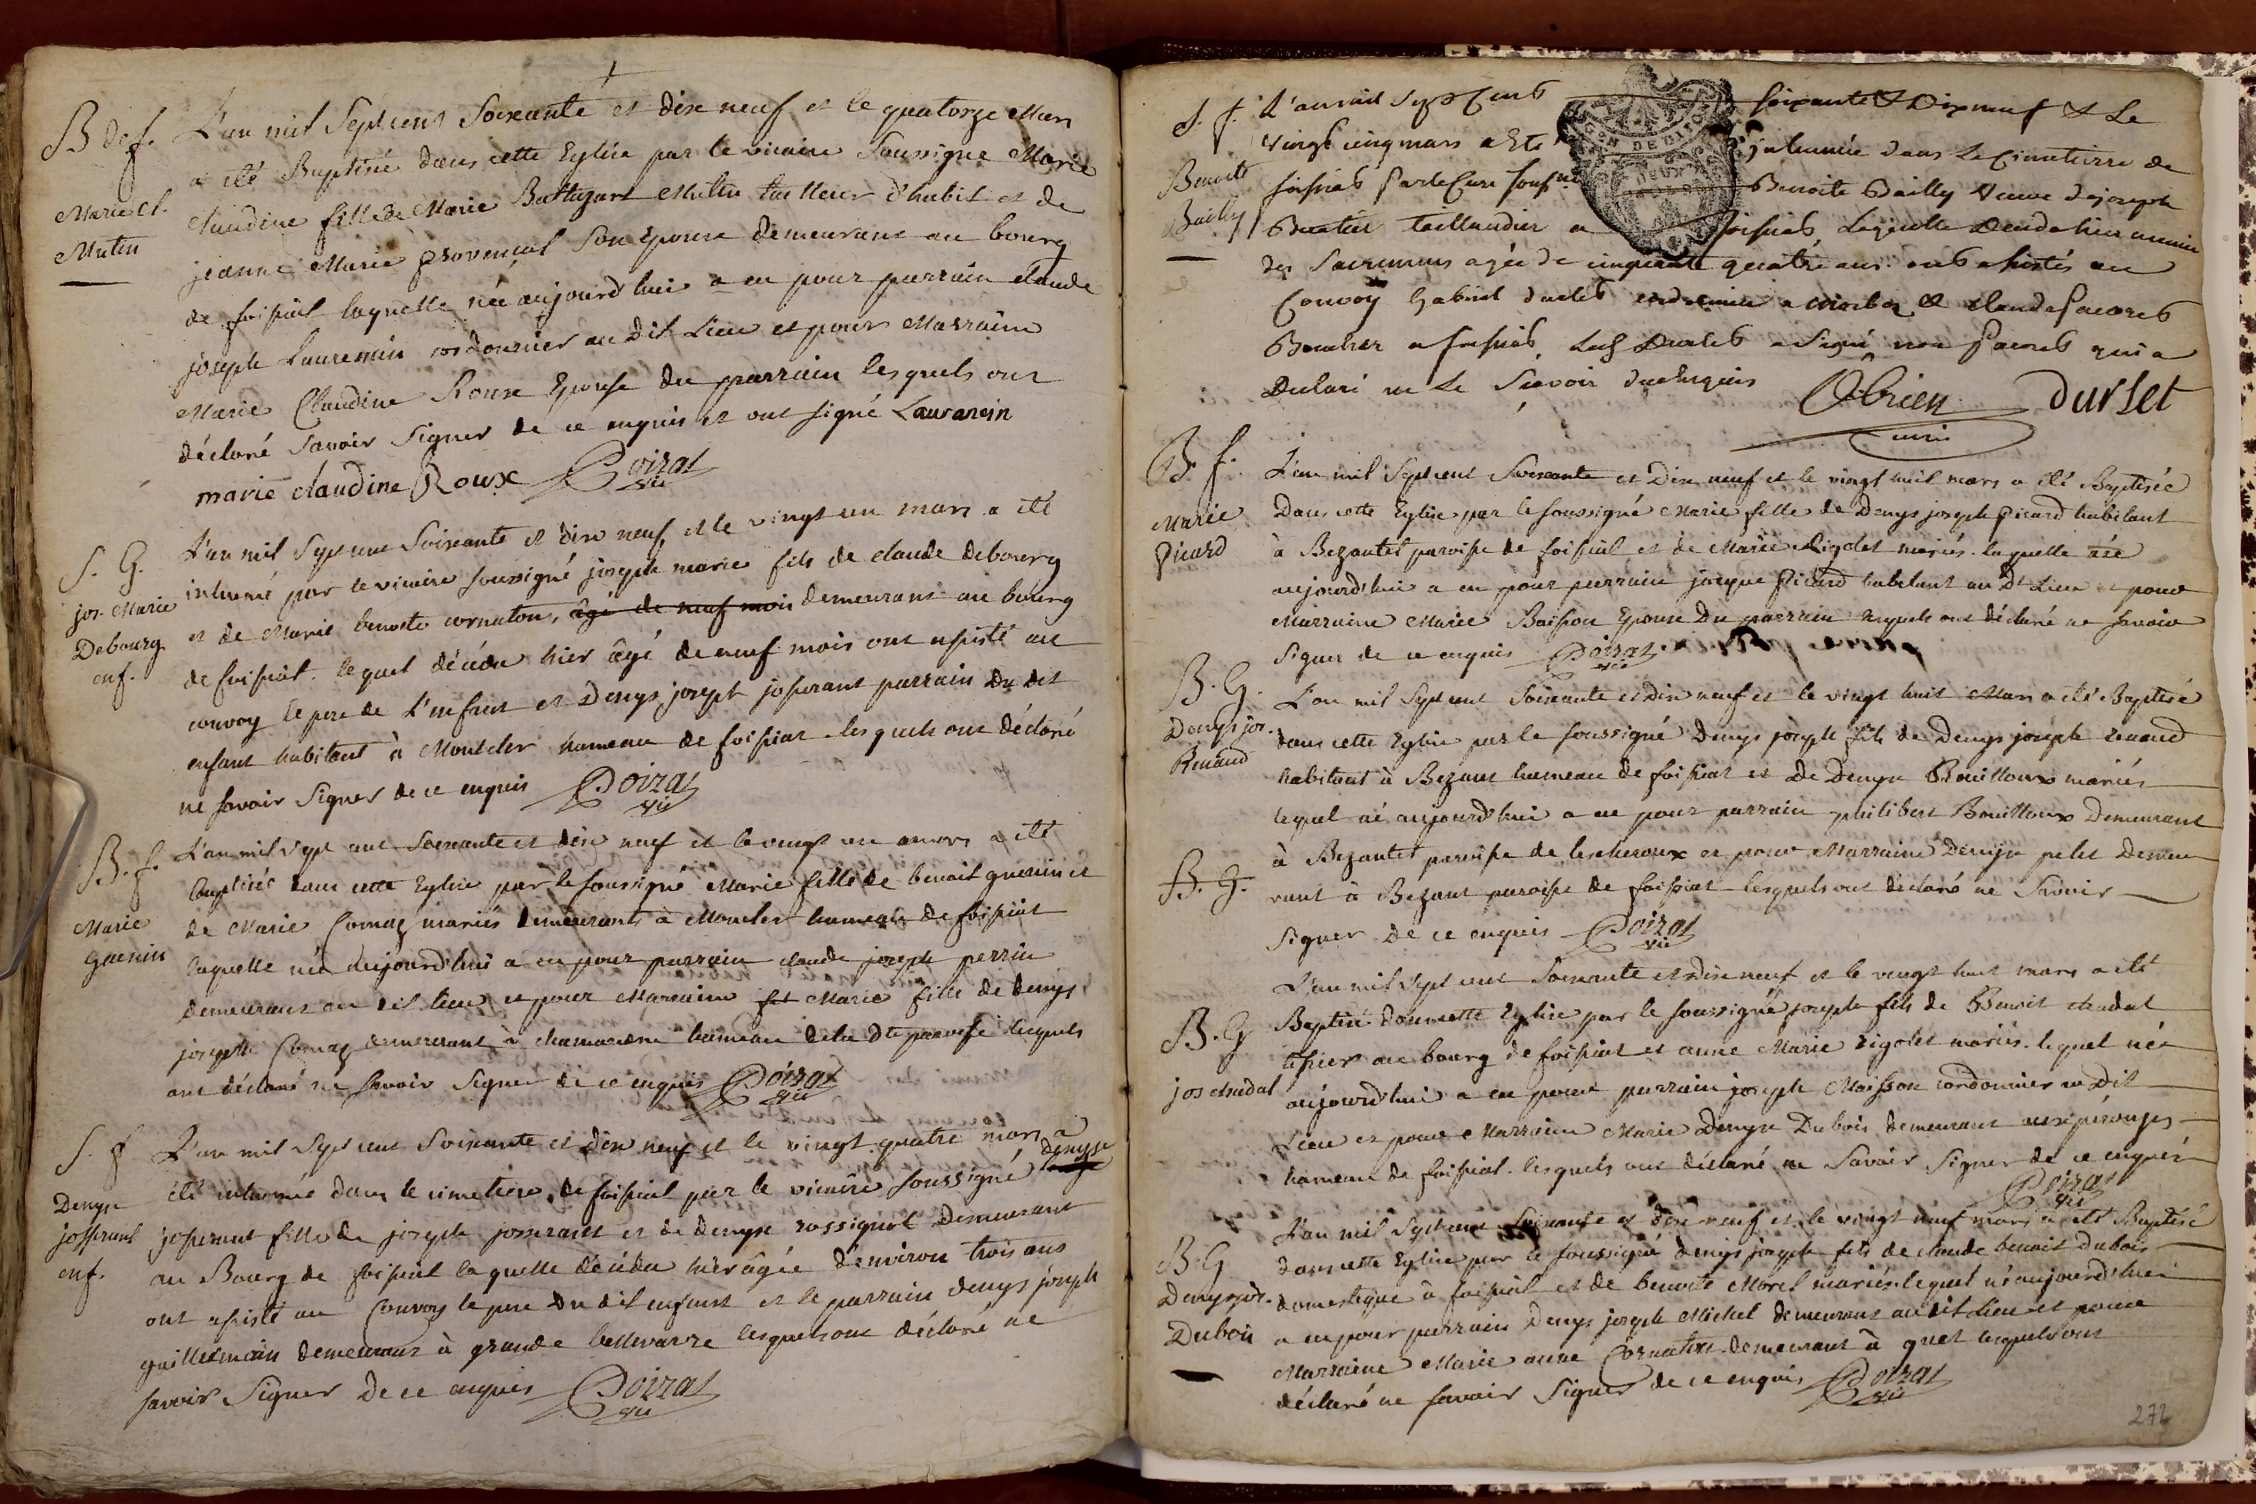 B de f.
Marie Cl.
Mutin
L'an mil Sept cent Soixante et dix neuf et le quatorze Mars
a été Baptisée dans cette Eglise par le vicaire Soussigné Marie
claudine fille de Marie Baltazart Mutin tailleur d'habit et de
jeanne Marie provencal Son Epouse demeurant au bourg
de foissiat laquelle née aujourd'hui a eu pour parrain claude
joseph Lauremin cordonnier au dit Lieu et pour Marraine
Marie Claudine Roux Epouse du parrain lesquels ont
déclaré Savoir Signer de ce enquis et ont signé Laurancin
marie claudine Roux Poizat
vic
S. G.
jos. Marie
Debourg
enf.
L'an mil Sept cent Soixante et dix neuf et le vingt un mars a été
inhumé par le vicaire soussigné joseph marie fils de claude debourg
et de Marie benoite cornaton, âgé de neuf mois demeurant au bourg
de foissiat. lequel décédé hier âgé de neuf mois ont assisté au
convoy le pere de L'enfant et Denys joseph josserant parrain Du dit
enfant habitant à Montcler hameau de foissiat lesquels ont déclaré
ne savoir Signer de ce enquis Poizat
vic
B. f.
Marie
guenin
L'an mil Sept cent Soixante et dix neuf et le vingt un mars a été
baptisée dans cette Eglise par le soussigné Marie fille de benoit guenin et
de Marie Comaz mariés demeurants à Moncler hameau de foissiat
laquelle née aujourd'hui a eu pour parrain claude joseph perrin
demeurant au dit lieu et pour Marraine Marie fille de denys
joseph Comaz demeurant à hameau de la Dte paroisse lesquels
ont déclaré ne savoir Signer de ce enquis Poizat
vic
S. f
Denyse
josserant
enf.
L'an mil Sept cent Soixante et dix neuf et le vingt quatre mars a
été inhumée dans le cimetiere de foissiat par le vicaire soussigné denyse
josserant fille de joseph josserant et de denyse rossignol demeurant
au Bourg de foissiat laquelle décédée hier âgée d'environ trois ans
ont assisté au Convoy le pere du dit enfant et le parrain denys joseph
guillermin demeurant à grande bellevavre lesquels ont déclaré ne
savoir Signer De ce enquis Poizat
vic
S. f.
Benoite
Bailly
L'an mil Sept Cent soixante & Dix neuf & Le
Vingt cinq mars a Eté inhumée dans Le Cimetierre de
foissiat Par le Curé souss.né Benoite Bailly Veuve de joseph
taillandier a foissiat Laquelle décédée hier munie
des Sacremens agée de cinquante quatre ans. ont assistés au
Convoy Gabriel & Claude
Boucher a foissiat, a Signé non qui a
Declaré ne Le Sçavoir de enquis Obrien durSet
curé
B. f.
Marie
Picard
L'an mil Sept cent Soixante et Dix neuf et le vingt huit mars a été Baptisée
Dans cette Eglise par le soussigné Marie fille de Denys joseph Picard habitant
à Bezantet paroisse de foissiat et de Marie Rigolet mariés. laquelle née
aujourd'hui a eu pour parrain jacque Picard habitant au Dt Lieu et pour
Marraine Marie Epouse Du parrain lesquels ont déclaré ne savoir
Signer de ce enquis Poizat
vic
B. G.
Denys jos.
Renaud
L'an mil Sept cent Soixante et dix neuf et le vingt huit Mars a été Baptisé
dans cette Eglise par le soussigné Denys joseph fils de Denys joseph renaud
habitant à Bezant hameau de foissiat et De Denyse Bouilloux mariés
lequel né aujourd'hui a eu pour parrain philibert Bouilloux Demeurant
à Bezantet paroisse de lescheroux et pour Marraine Denyse Demeu
rant à Bezant paroisse de foissiat lesquels ont déclaré ne Savoir
Signer De ce enquis Poizat
vic
B. G.
B. G
jos chudat
L'an mil Sept cent Soixante et dix neuf et le vingt huit mars a été
Baptisé dans cette Eglise par le soussigné joseph fils de Benoit chudat
tissier au bourg de foissiat et anne Marie rigolet mariés. lequel né
aujourd'hui a eu pour parrain joseph Moisson cordonnier au Dit
Lieu et pour Marraine Marie Denyse Dubois demeurant aux péronges
hameau de foissiat. lesquels ont déclaré ne Savoir Signer de ce enquis
Poizat
vic
B. G
Denys jos.
Dubois
L'an mil Sept cent Soixante et dix neuf et le vingt neuf mars a été Baptisé
dans cette Eglise par le soussigné denys joseph fils de claude benoit dubois
domestique à foissiat et de benoite Morel mariés. lequel né aujourd'hui
a eu pour parrain Denys joseph Michel demeurant au dit Lieu et pour
Marraine Marie anne Cornaton demeurant à lesquels ont
déclaré ne savoir Signer de ce enquis Poizat
vic
272